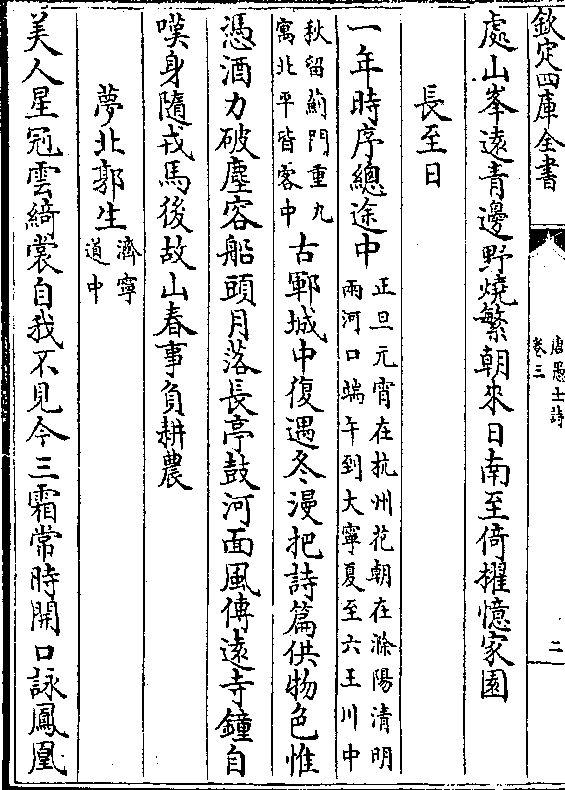 欽定四庫全書
唐愚士詩
卷三
二
處山峯遠青邊野燒繁朝來日南至倚櫂憶家園
長至日
一年時序總途中
正旦元宵在杭州花朝在滁陽清明
兩河口端午到大寧夏至六王川中
秋留薊門重九
寓北平皆客中
古鄆城中復遇冬漫把詩篇供物色惟
憑酒力破塵容船頭月落長亭鼓河面風傳遠寺鐘自
嘆身隨戎馬後故山春事負耕農
夢北郭生
濟寧
道中
美人星冠雲綺裳自我不見今三霜常時開口詠鳳凰